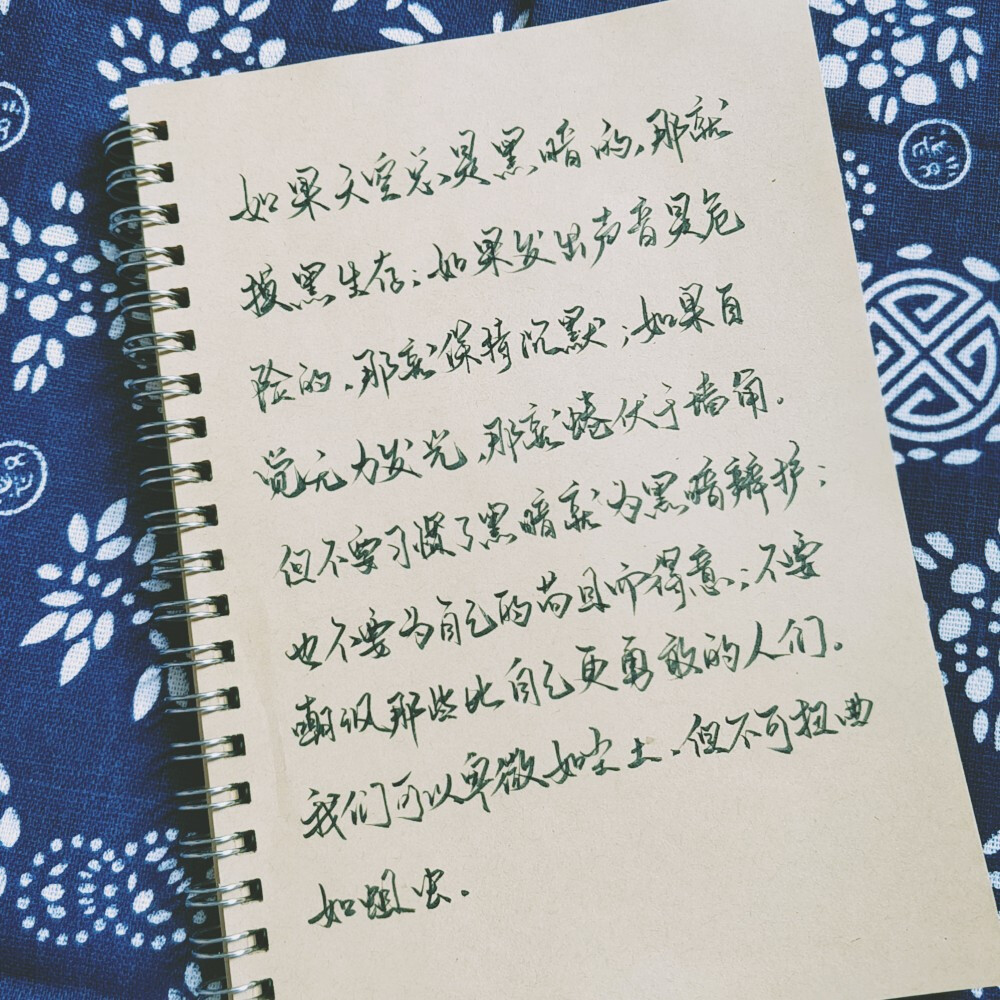 如果天空总是黑暗的、那就
摸黑生存；如果发出声音是危
险的、那就保持沉默；如果自
觉无力发光、那就蜷伏于墙角.
但不要习惯了黑暗就为黑暗辩护；
也不要为自己的苟且而得意；不要
嘲讽那些比自己更勇敢的人们。
我们可以卑微如尘土、但不可扭曲
如蛆虫.